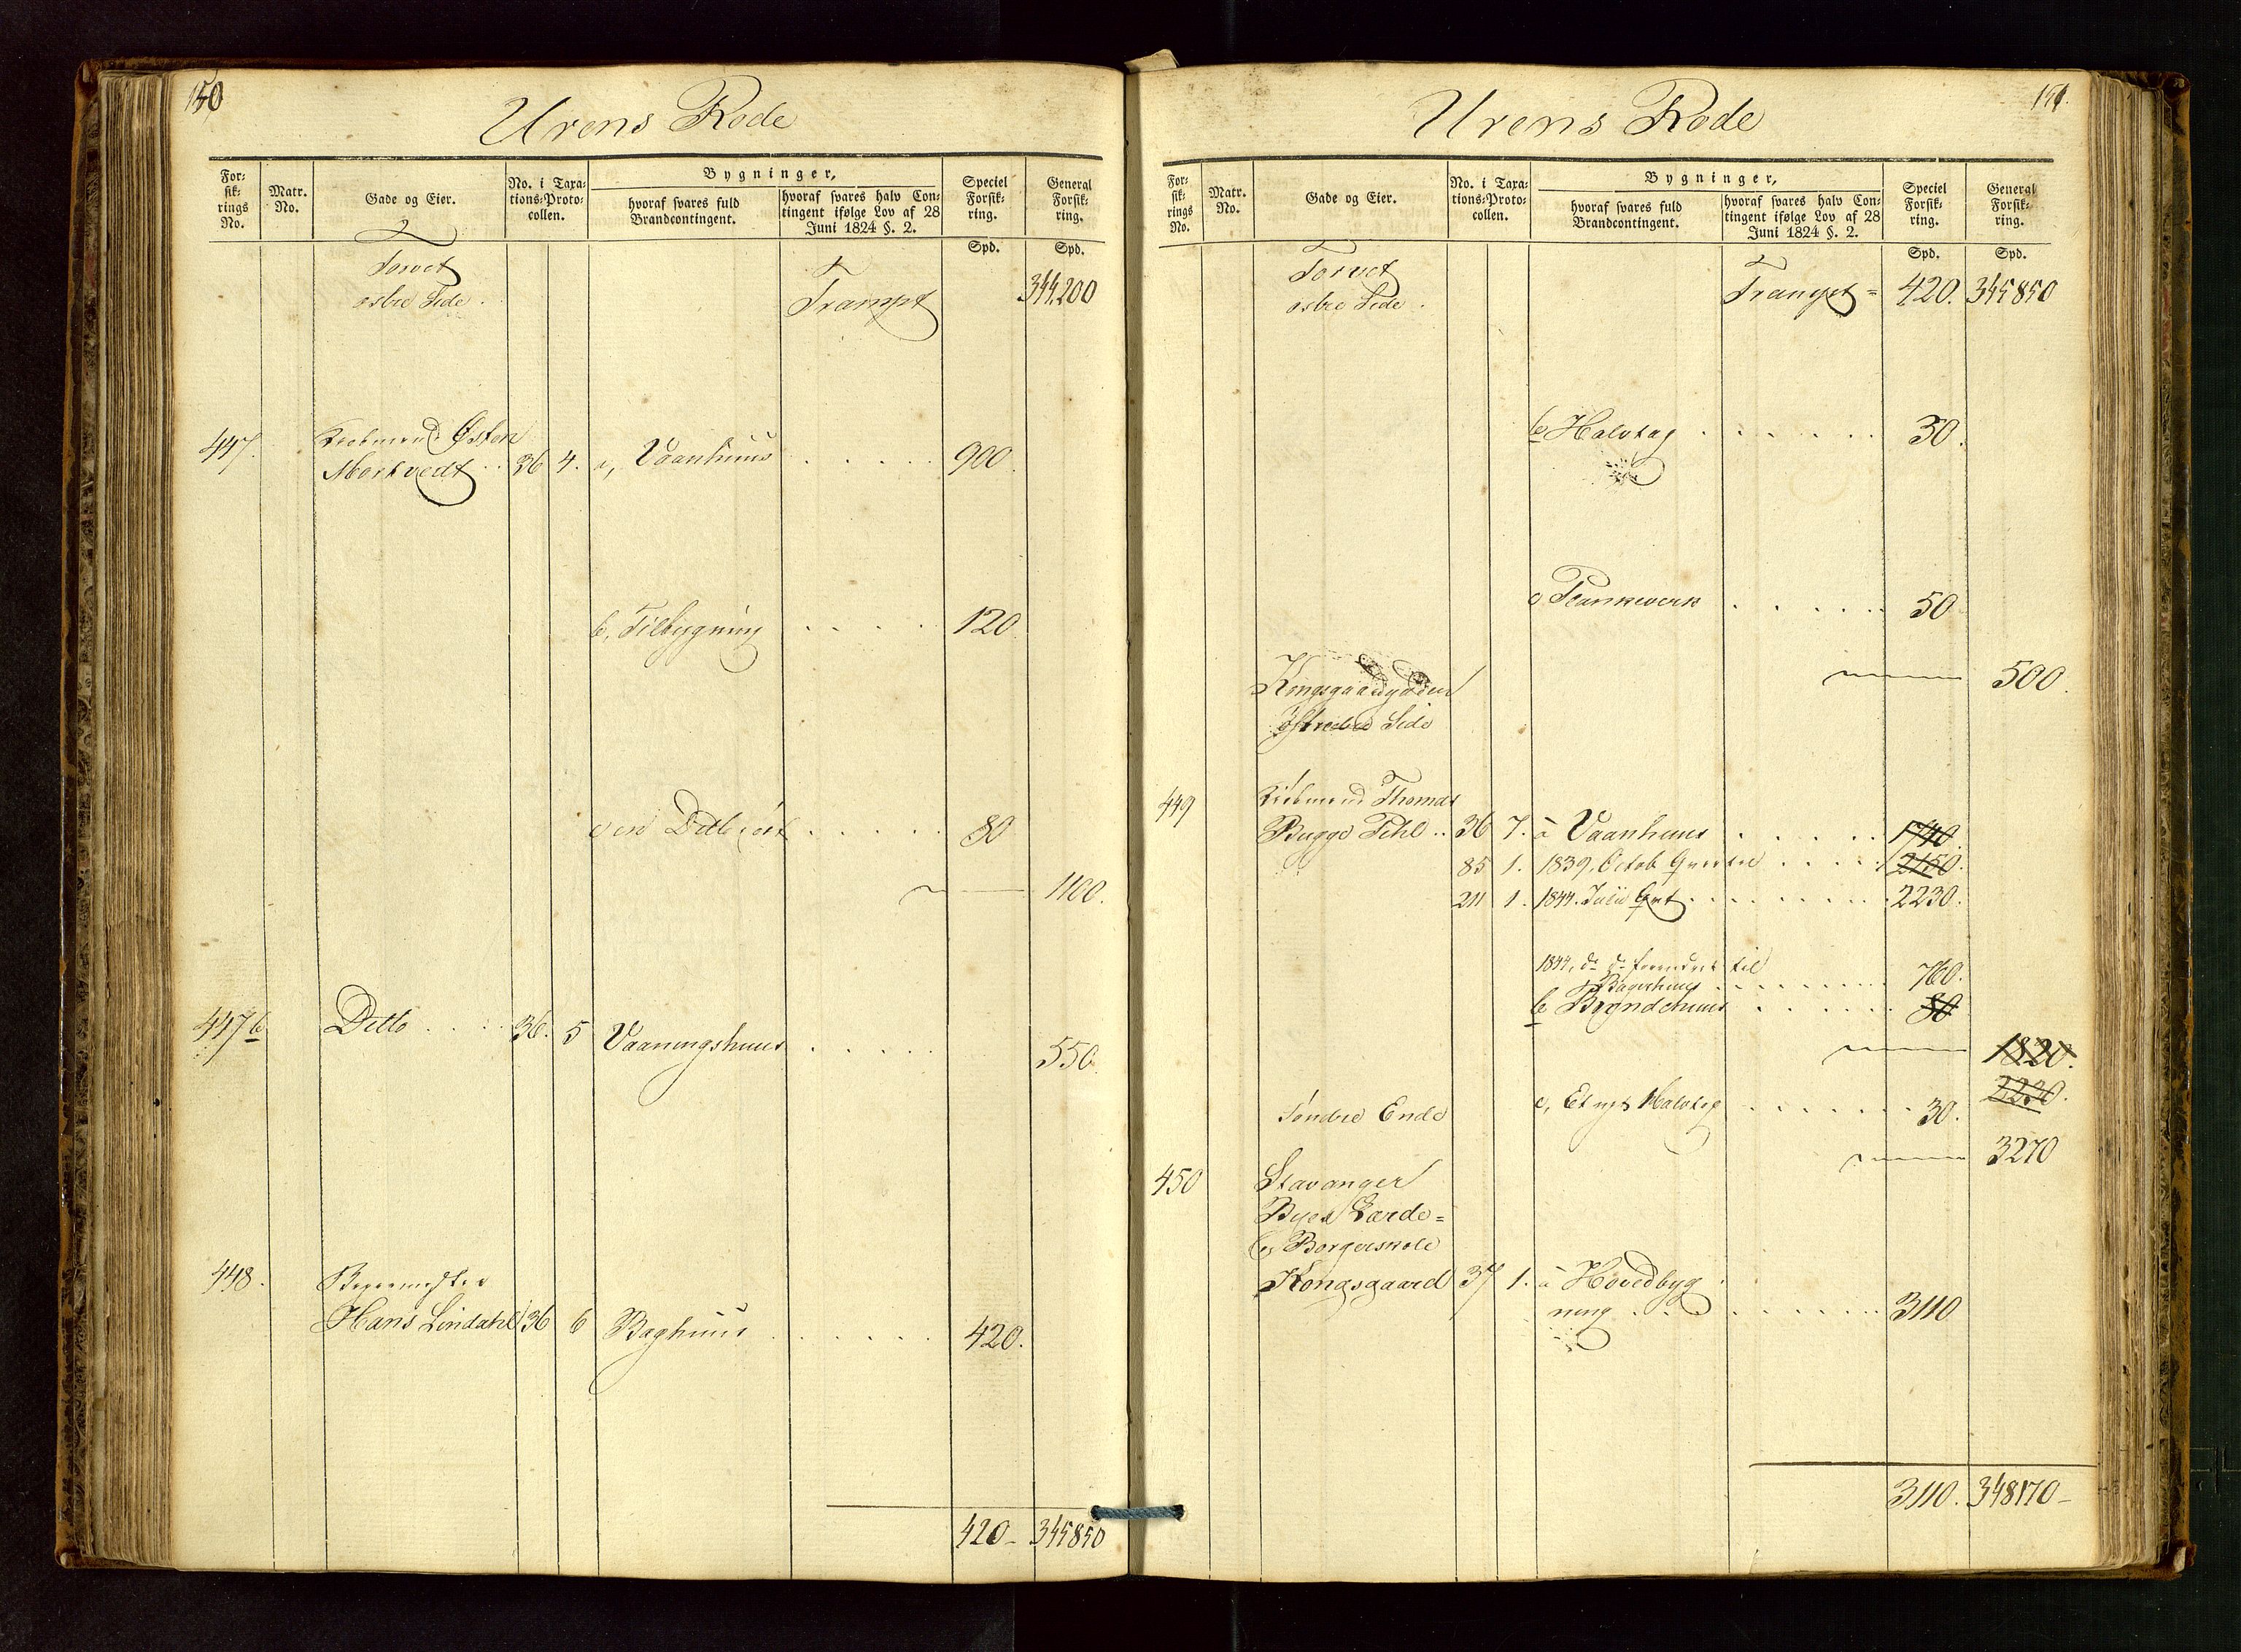 150
Urens Rode
For-
sik-
rings
No.
Matr.
No.
Gade og Eier.
No. i Taxa-
tions-Proto-
collen.
Bygninger,
hvoraf svares fuld
Brandcontingent.
hvoraf svares halv Con-
tingent ifølge Lov af 28
Juni 1824 §. 2.
Speciel
Forsik-
ring.
General
Forsik-
ring.
Spd.
Spd.
Torvet
østre Side.
Transpt
344,200
447. Kiøbmand Østen
Mortvedt .. 36 4. a, Vaanhuus . . . . . 900.
b, Tilbygning . . . . 120.
c en Ditto i øst . . . . . 80
1100.
447 b Ditto . . . 36. 5 Vaaningshuus . . . . . 550.
448. Bagermester
Hans Lindahl 36 6 Baghuus . . . . . . 420.
420 345850
151.
Urens Rode
For-
sik-
rings
No.
Matr.
No.
Gade og Eier.
No. i Taxa-
tions-Proto-
collen.
Bygninger,
hvoraf svares fuld
Brandcontingent.
hvoraf svares halv Con-
tingent ifølge Lov af 28
Juni 1824 §. 2.
Speciel
Forsik-
ring.
General
Forsik-
ring.
Spd.
Spd.
Torvet
østre Side.
Transpt = 420. 345850
b Halvtag . . . . . . 30.
c Plankeverk . . . . . 50
500.
Side
449 Kiøbmand Thomas
Bugge Pihl .. 36 7. a Vaanhuus . . . . . 1740.
85 1. 1839, Octob . . . . . 2150.
211 1. 1844. Julii . . . . . 2230.
1844, do do forandret til
Bagerhuus . . . . . 760.
b Brøndehuus . . . . . 80
1820.
2230.
Søndre Ende
c, Et nyt Halvtag . . . . . 30.
3270
450 Stavanger
Byes Lærde=
og Borgerskole
Kongsgaard 37 1. a Hovedbyg
ning . . . . . 3110
3110. 348170